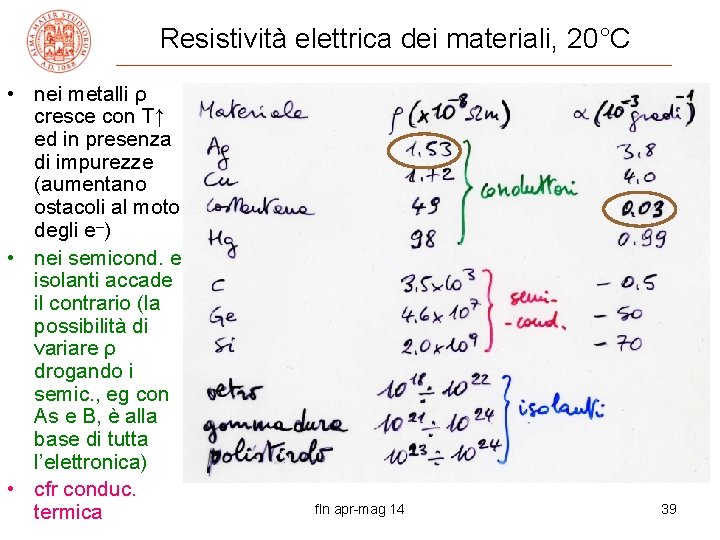 Resistività elettrica dei materiali, 20°C
• nei metalli ρ
cresce con T↑
ed in presenza
di impurezze
(aumentano
ostacoli al moto
degli e–)
• nei semicond. e
isolanti accade
il contrario (la
possibilità di
variare ρ
drogando i
semic., eg con
As e B, è alla
base di tutta
l'elettronica)
• cfr conduc.
termica
Materiale ρ (×10⁻⁸ Ωm) α (10⁻³ gradi⁻¹)
Ag 1.53 3.8
Cu 1.72 4.0
costantana 49 0.03
Hg 98 0.99
conduttori
C 3.5×10³ – 0.5
Ge 4.6×10⁷ – 50
Si 2.0×10⁹ – 70
semi-
-cond.
vetro 10¹⁸ ÷ 10²²
gomma dura 10²¹ ÷ 10²⁴
polistirolo 10²³ ÷ 10²⁴
isolanti
fln apr-mag 14
39
ALMA MATER STUDIORUM
A.D. 1088